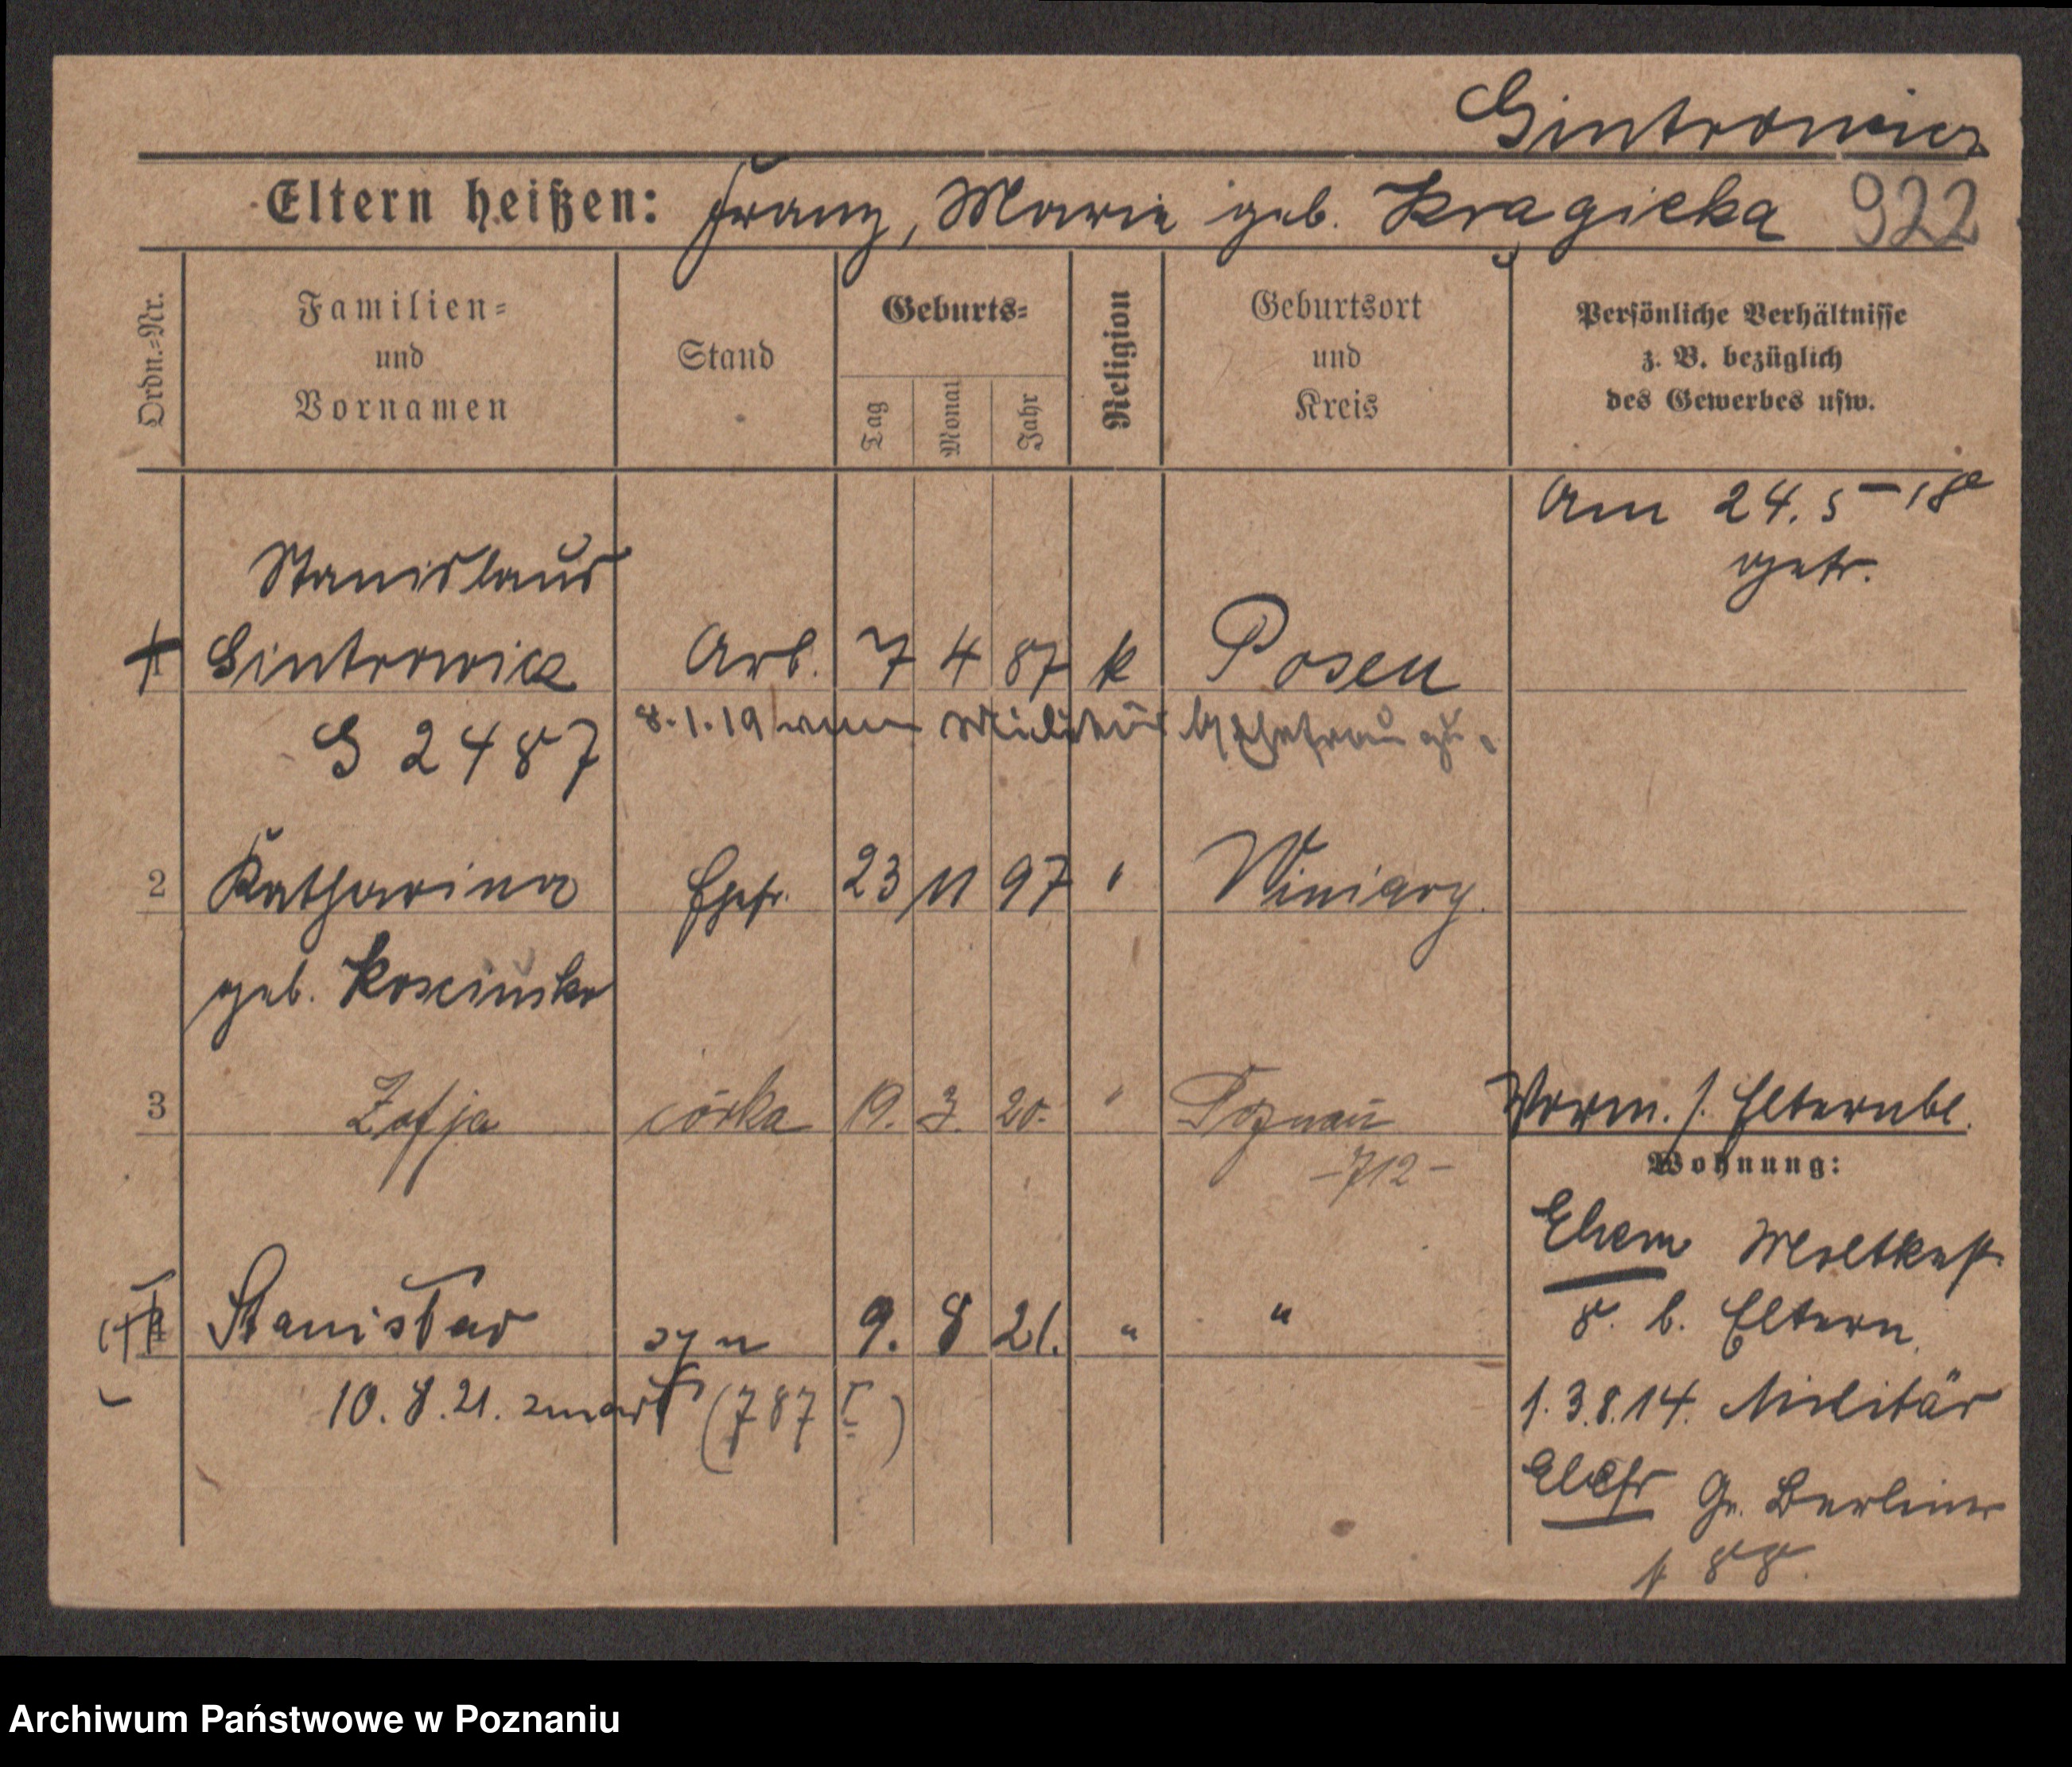 Gintrowicz
Eltern heißen: Franz, Marie geb. Kragicka 922
Ordn.=Nr.
Familien=
und
Vornamen
Stand
Geburts=
Tag
Monat
Jahr
Religion
Geburtsort
und
Kreis
Persönliche Verhältnisse
z. B. bezüglich
des Gewerbes usw.
Am 24. 5 - 18
getr.
Stanislaus
Gintrowicz Arb. 7 4 87 k Posen
G 2487 8.1.19 vom Militär b/ Ehefrau zu.
2 Katharina Ehefr. 23 11 97 " Winiary
geb. Koscinska
3 Zofja córka 19. 3. 20. " Poznań
-712-
Vorm. s. Elternbl.
Wohnung:
Ehem Moltkest
8. b. Eltern.
Stanisław syn 9. 8 21. " "
10. 8. 21. zmarł (787 I)
1. 3.8.14. Militär
Ehefr Gr. Berliner
88.
Archiwum Państwowe w Poznaniu